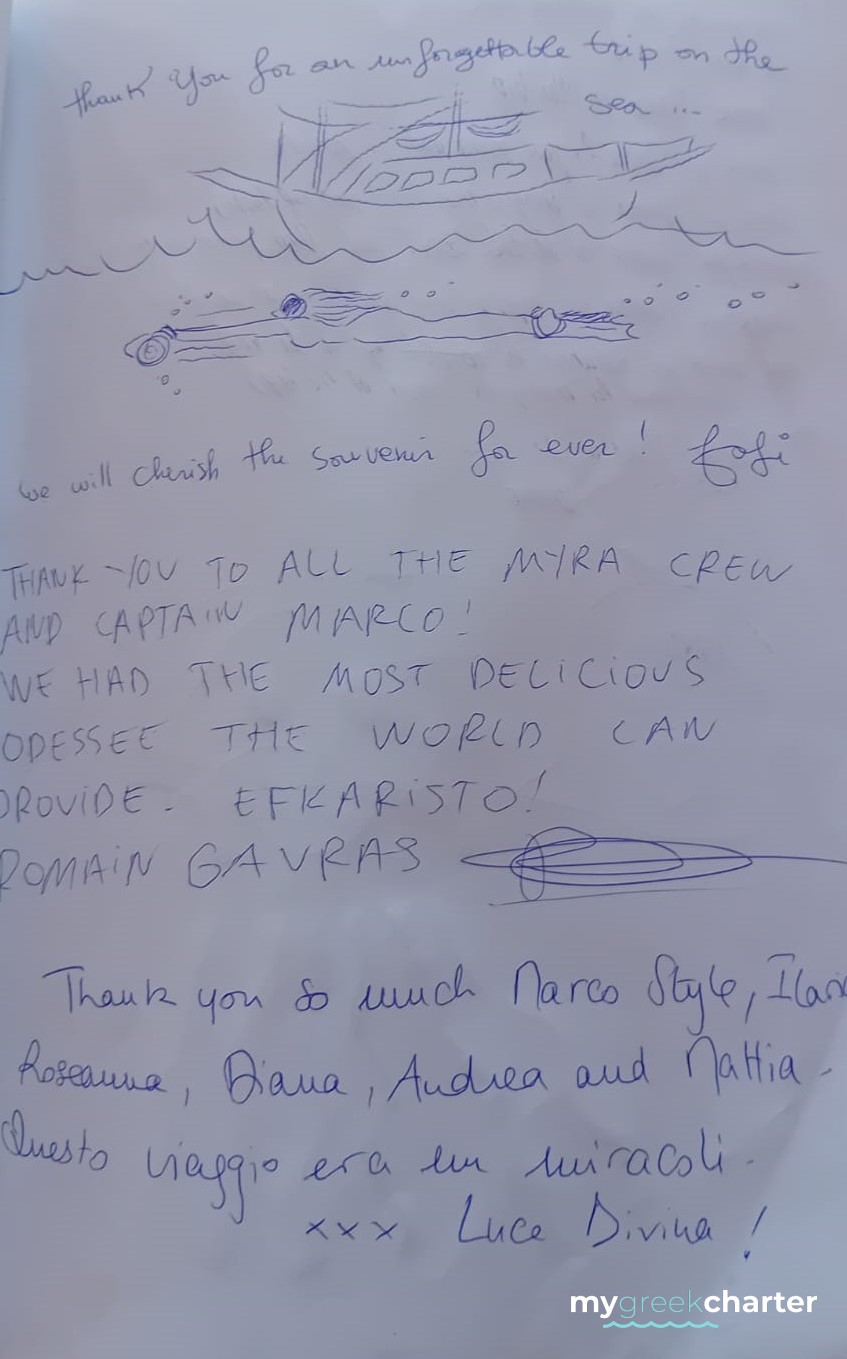 thank you for an unforgettable trip on the
sea ...
we will cherish the souvenir for ever !
THANK YOU TO ALL THE MYRA CREW
AND CAPTAIN MARCO!
WE HAD THE MOST DELICIOUS
ODESSEE THE WORLD CAN
PROVIDE. EFKARISTO!
ROMAIN GAVRAS
Thank you so much Marco Style,
Roseanna, Diana, Andrea and Mattia.
Questo viaggio era un miracoli.
xxx Luce Divina !
mygreekcharter